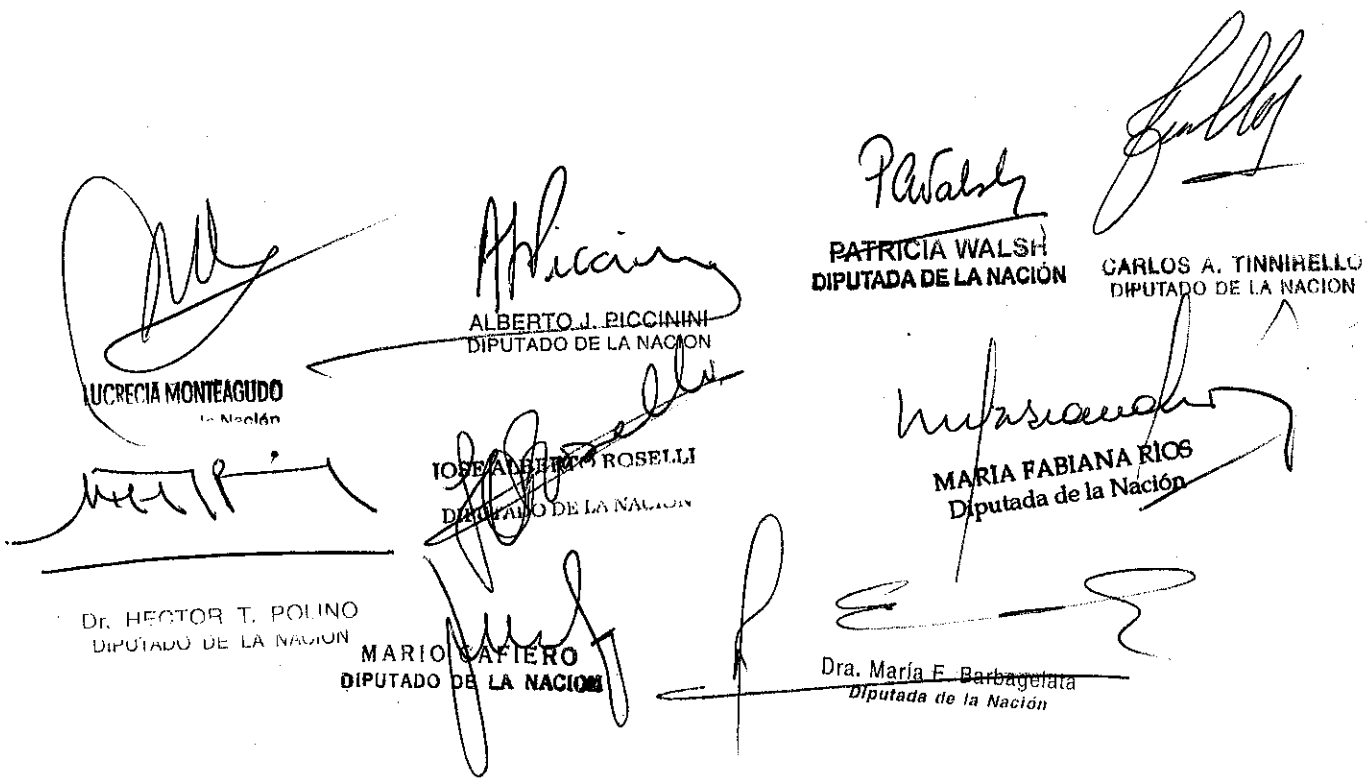 PWalsh
PATRICIA WALSH
DIPUTADA DE LA NACIÓN
CARLOS A. TINNIRELLO
DIPUTADO DE LA NACION
APiccinini
ALBERTO J. PICCININI
DIPUTADO DE LA NACION
LUCRECIA MONTEAGUDO
la Nación
JOSE ALBERTO ROSELLI
DIPUTADO DE LA NACION
MARIA FABIANA RIOS
Diputada de la Nación
Dr. HECTOR T. POLINO
DIPUTADO DE LA NACION
MARIO CAFIERO
DIPUTADO DE LA NACION
Dra. María E. Barbagelata
Diputada de la Nación